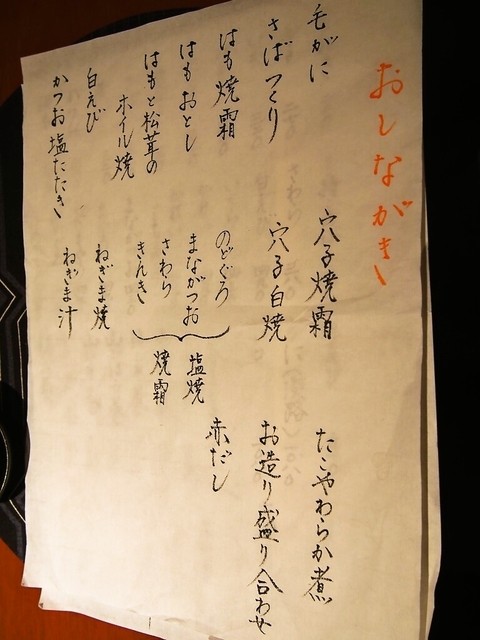 おしながき
毛がに
さばつくり
はも焼霜
はもおとし
はもと松茸の
ホイル焼
白えび
かつお塩たたき
穴子焼霜
穴子白焼
のどぐろ
まながつお
さわら
きんき
塩焼
焼霜
ねぎま焼
ねぎま汁
たこやわらか煮
お造り盛り合わせ
赤だし